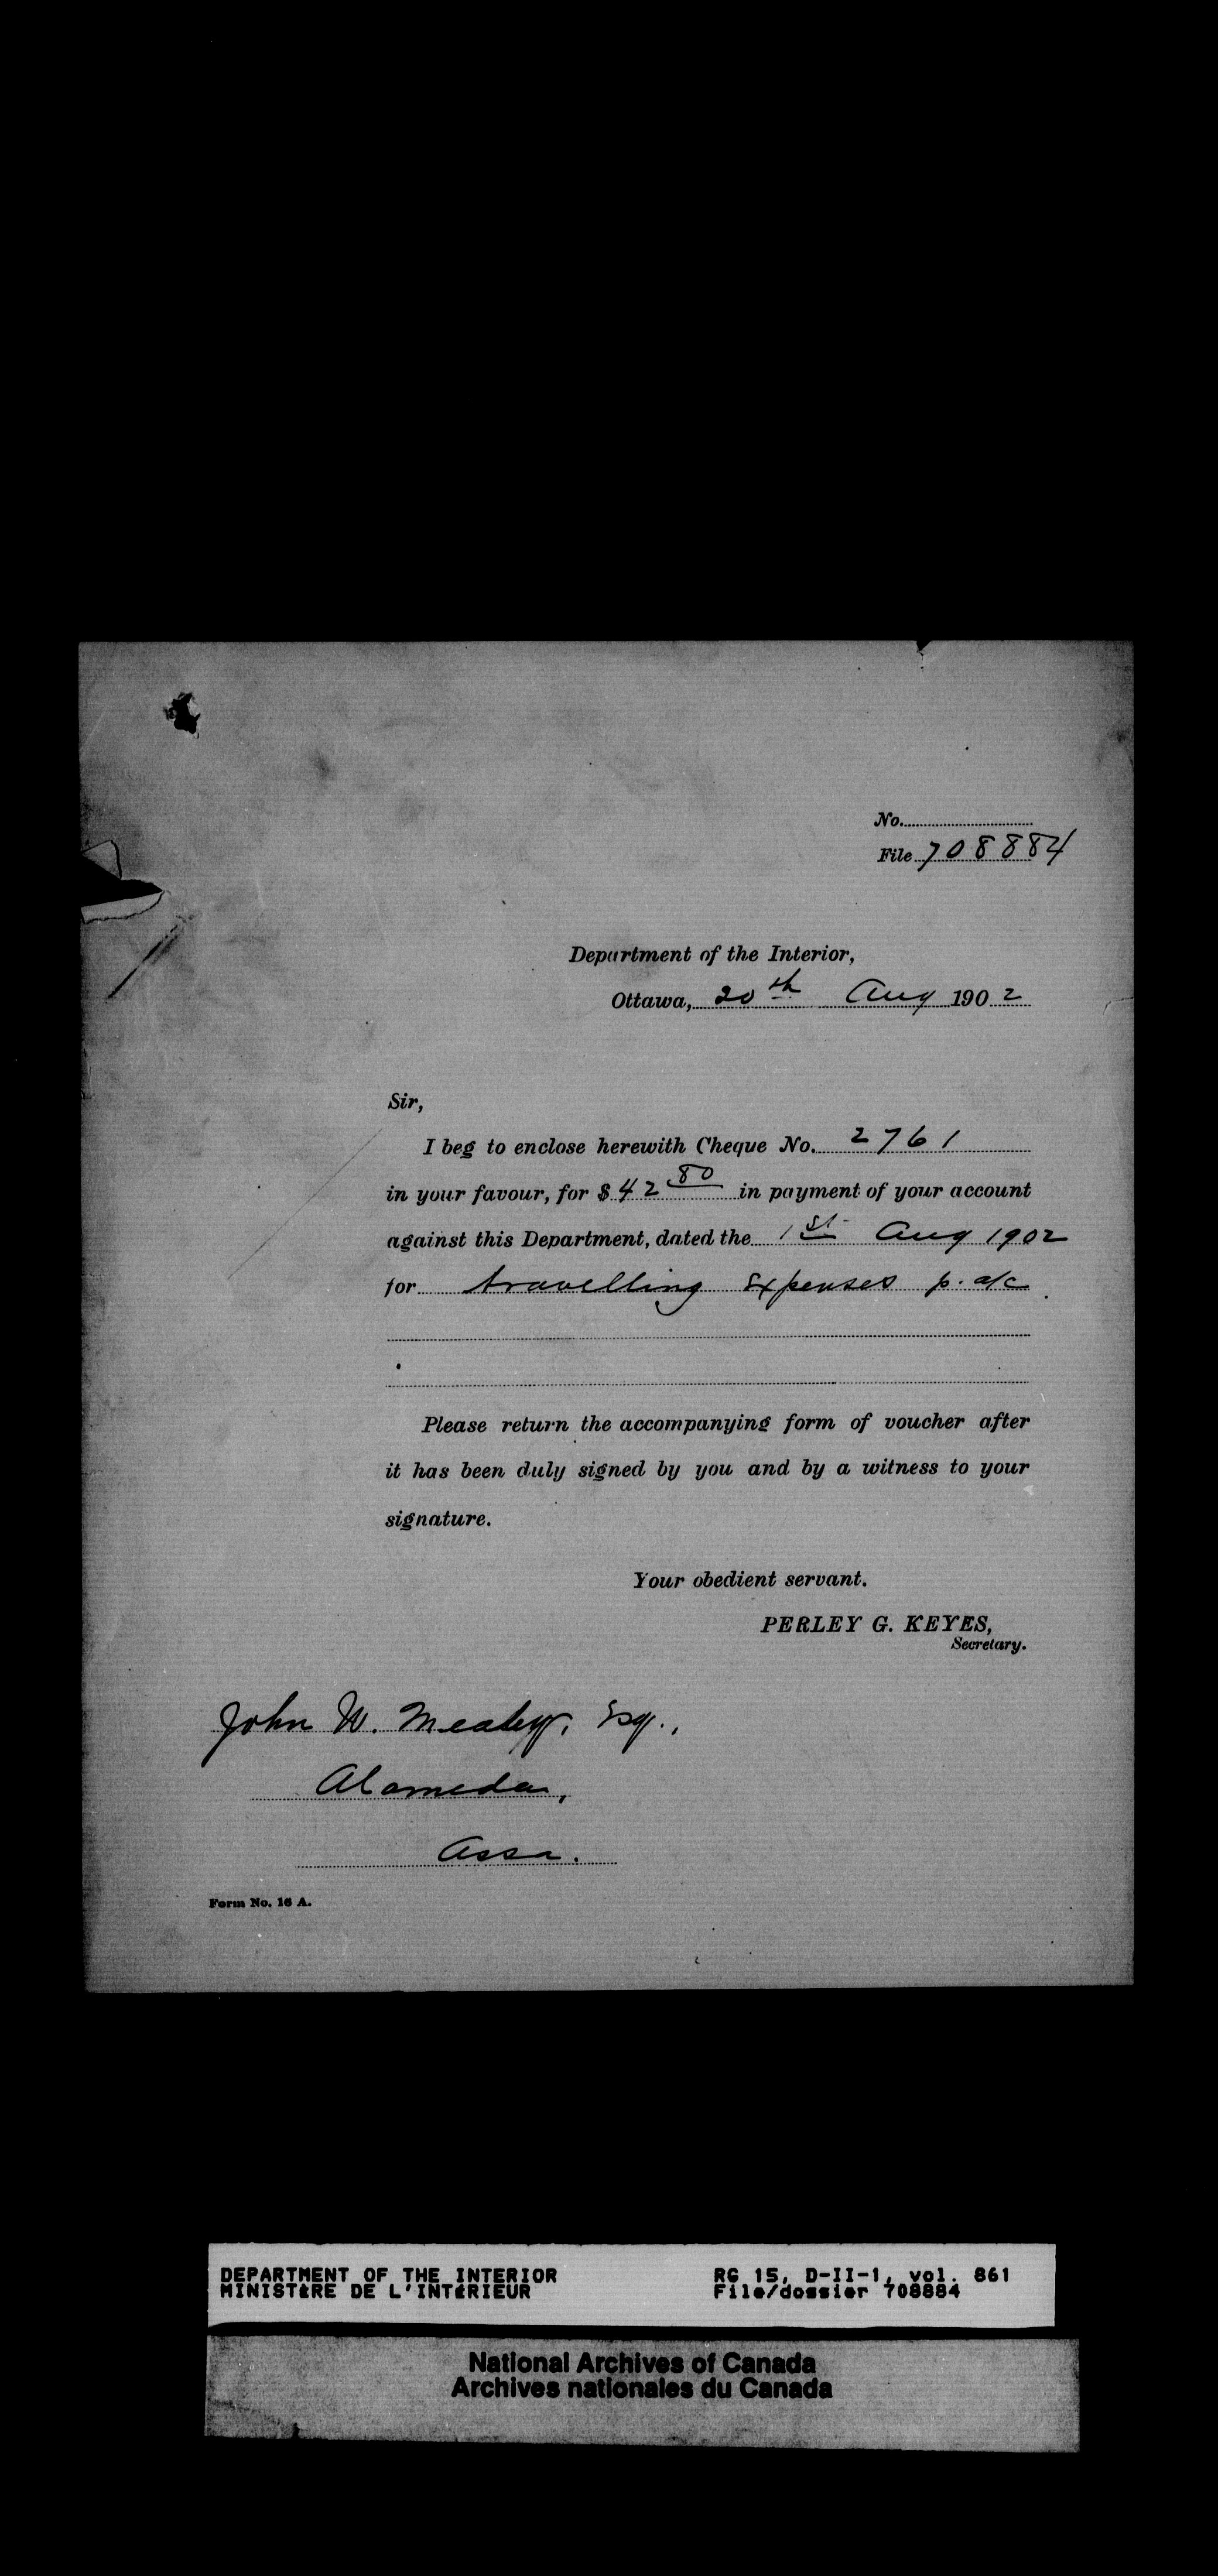 No.
File 708884
Department of the Interior,
Ottawa, 20th Aug 1902
Sir,
I beg to enclose herewith Cheque No. 2761
in your favour, for $ 42 80 in payment of your account
against this Department, dated the 1st Aug 1902
for travelling expenses p. a/c
Please return the accompanying form of voucher after
it has been duly signed by you and by a witness to your
signature.
Your obedient servant.
PERLEY G. KEYES,
Secretary.
John W. Mealey, Esq.,
Alameda,
Assa.
Form No. 16 A.
DEPARTMENT OF THE INTERIOR RG 15, D-II-1, vol. 861
MINISTÈRE DE L'INTÉRIEUR File/dossier 708884
National Archives of Canada
Archives nationales du Canada